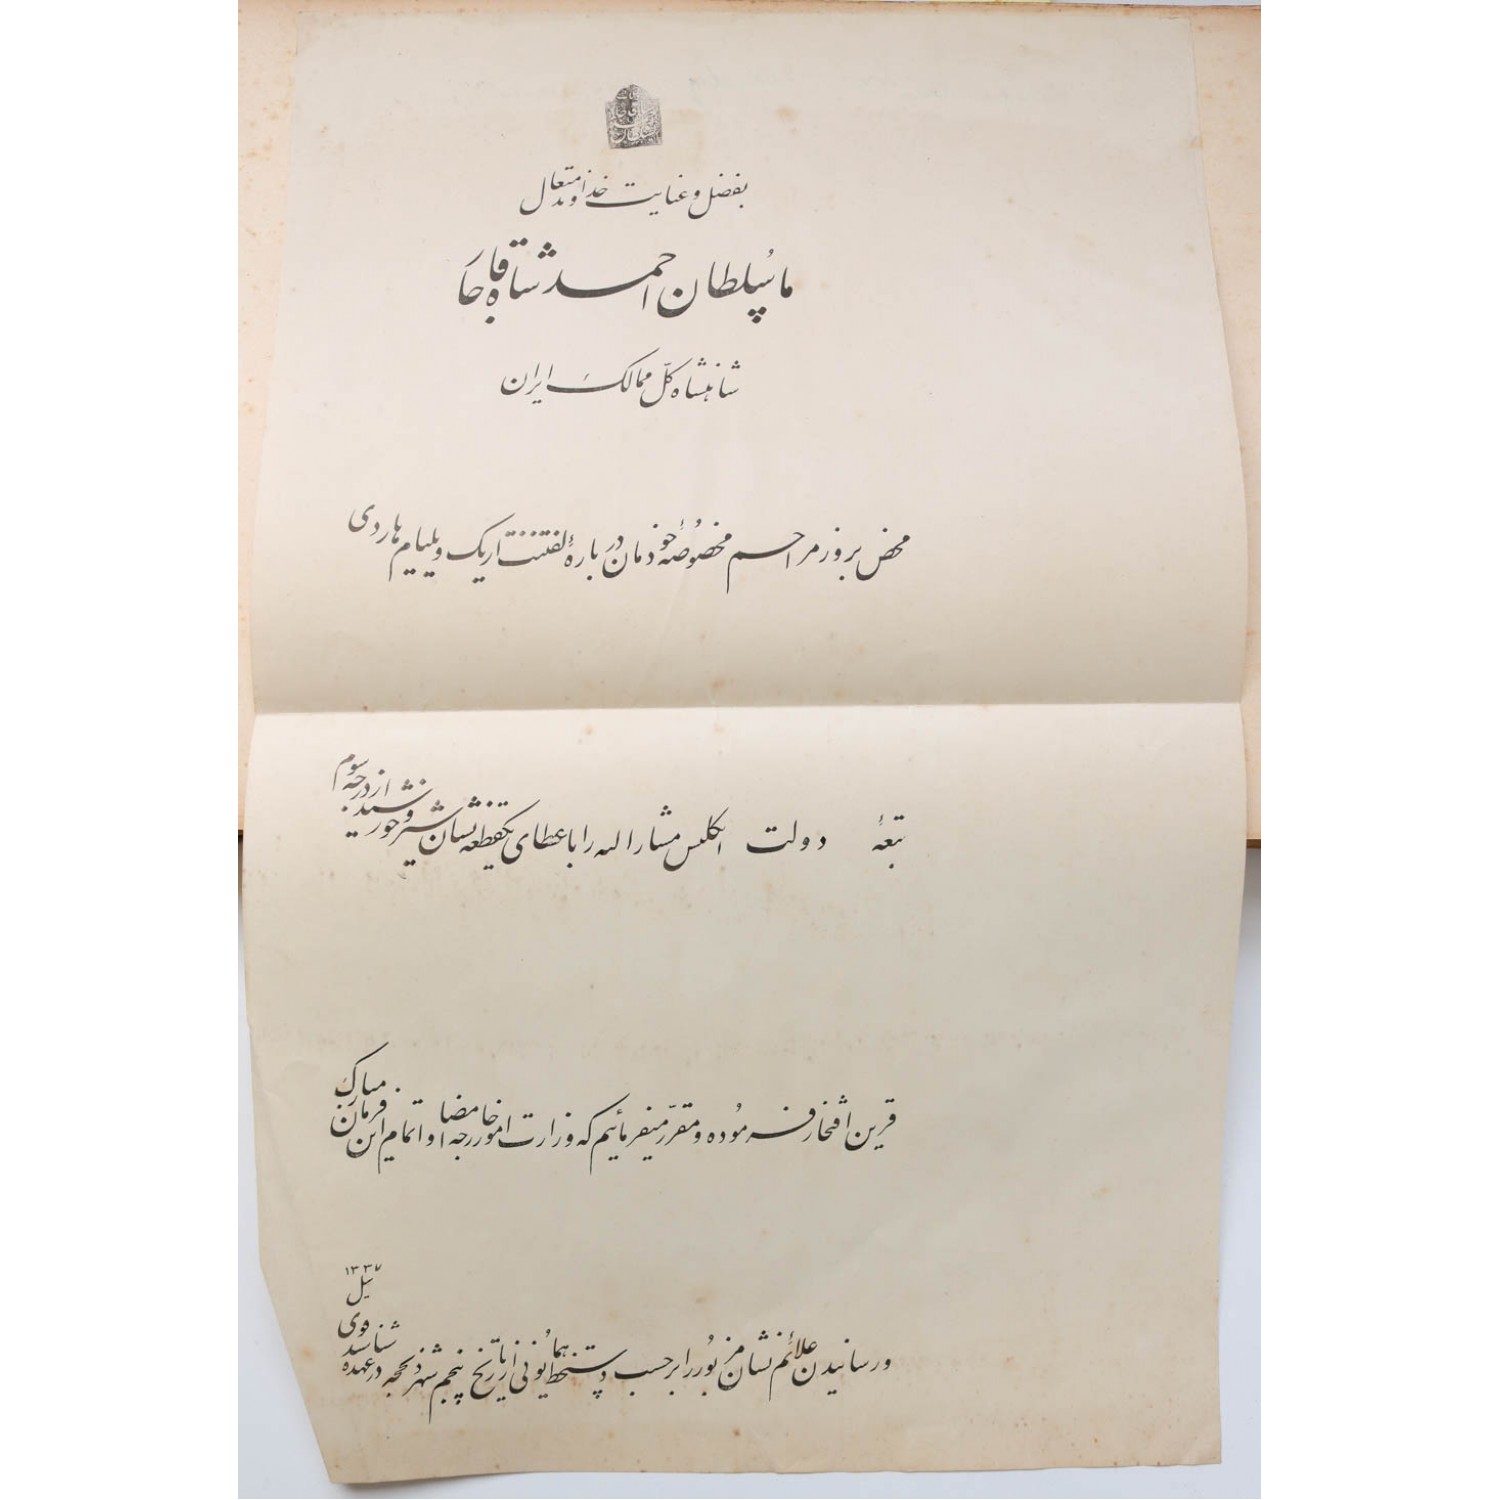 بفضل و عنایت خداوند متعال
ما سلطان احمد شاه قاجار
شاهنشاه کل ممالک ایران
محض بروز مراحم مخصوصهٔ خودمان در بارهٔ لفتننت اریک ویلیام هاردی
تبعهٔ دولت انگلیس مشارالیه را با عطای یکقطعه نشان شیر و خورشید از درجه سوم
قرین افتخار فرموده و مقرّر میفرمائیم که وزارت امور خارجه امضا و اتمام این فرمان مبارک
و رسانیدن علائم نشان مزبور را بر حسب دستخط همایونی از تاریخ پنجم شهر ذیحجه سیل ۱۳۳۷ در عهده شناسد